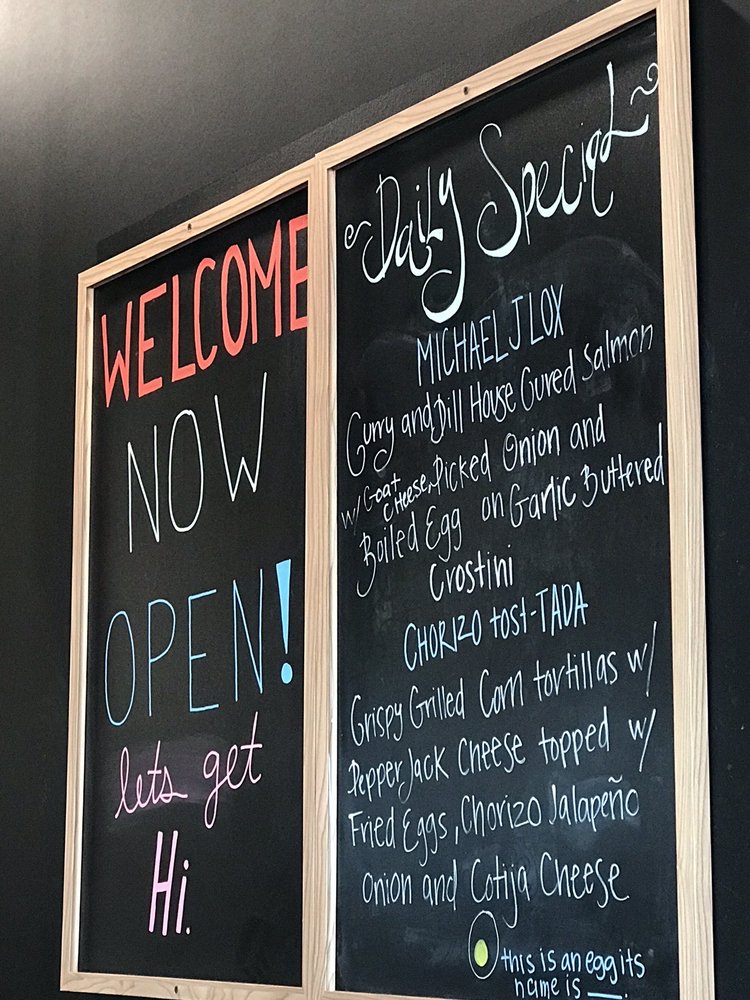 WELCOME
NOW
OPEN!
lets get
Hi.
Daily Special
MICHAEL J LOX
Curry and Dill House Cured Salmon
w/ Goat Cheese, Picked Onion and
Boiled Egg on Garlic Buttered
Crostini
CHORIZO tost-TADA
Crispy Grilled Corn tortillas w/
Pepper Jack Cheese topped w/
Fried Eggs, Chorizo Jalapeño
Onion and Cotija Cheese
this is an egg its
name is ___.